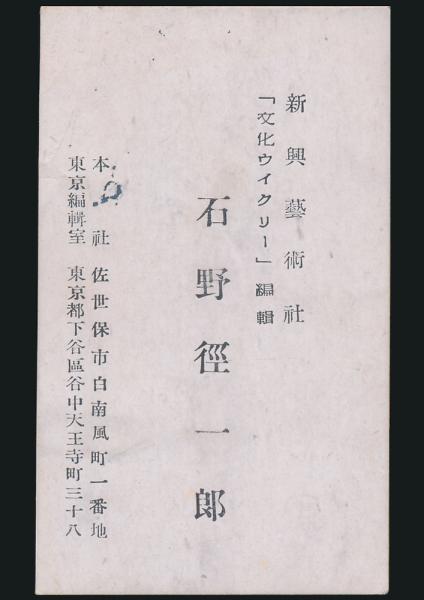 新興藝術社
「文化ウイクリー」編輯
石野徑一郎
本社 佐世保市白南風町一番地
東京編輯室 東京都下谷區谷中天王寺町三十八